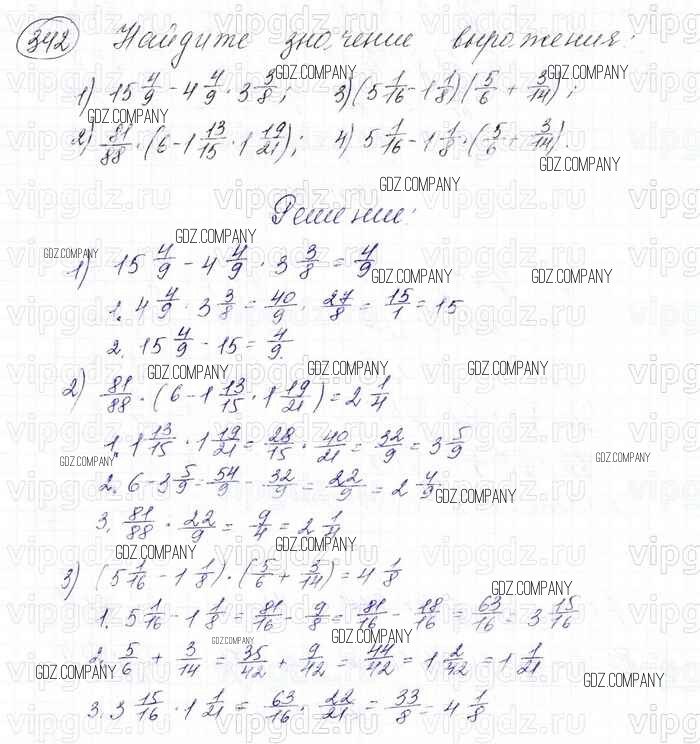 342 Найдите значение выражения:
1) 15 4/9 - 4 4/9 · 3 3/8; 3) (5 1/16 - 1 1/8)(5/6 + 3/14);
2) 81/88 · (6 - 1 13/15 · 1 19/21); 4) 5 1/16 - 1 1/8 · (5/6 + 3/14).
Решение:
1) 15 4/9 - 4 4/9 · 3 3/8 = 4/9
1. 4 4/9 · 3 3/8 = 40/9 · 27/8 = 15/1 = 15
2. 15 4/9 - 15 = 4/9.
2) 81/88 · (6 - 1 13/15 · 1 19/21) = 2 1/4
1. 1 13/15 · 1 19/21 = 28/15 · 40/21 = 32/9 = 3 5/9
2. 6 - 3 5/9 = 54/9 - 32/9 = 22/9 = 2 4/9
3. 81/88 · 22/9 = 9/4 = 2 1/4
3) (5 1/16 - 1 1/8) · (5/6 + 3/14) = 4 1/8
1. 5 1/16 - 1 1/8 = 81/16 - 9/8 = 81/16 - 18/16 = 63/16 = 3 15/16
2. 5/6 + 3/14 = 35/42 + 9/42 = 44/42 = 1 2/42 = 1 1/21
3. 3 15/16 · 1 1/21 = 63/16 · 22/21 = 33/8 = 4 1/8
GDZ.COMPANY
vipgdz.ru